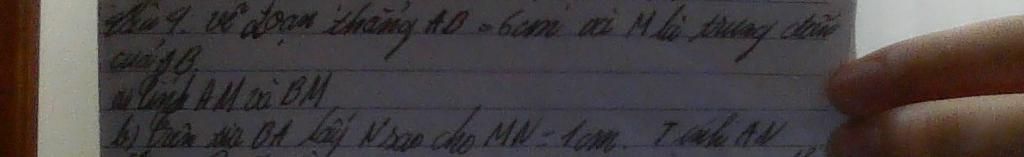 Câu 4. vẽ đoạn thẳng AB = 6cm và M là trung điểm
của AB
a) Tính AM và BM
b) Trên tia BA lấy N sao cho MN = 1cm. Tính AN